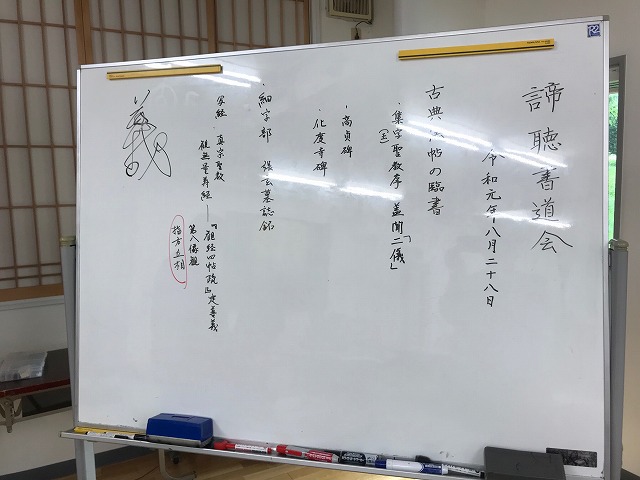 諦聴書道会
令和元年八月二十八日
古典法帖の臨書
・集字聖教序 蓋聞二儀」
(王)
・高貞碑
・化度寺碑
・細字部 張玄墓誌銘
写経・真宗聖教
観無量寿経―『観経四帖疏』定善義
第八像観
指方立相
義